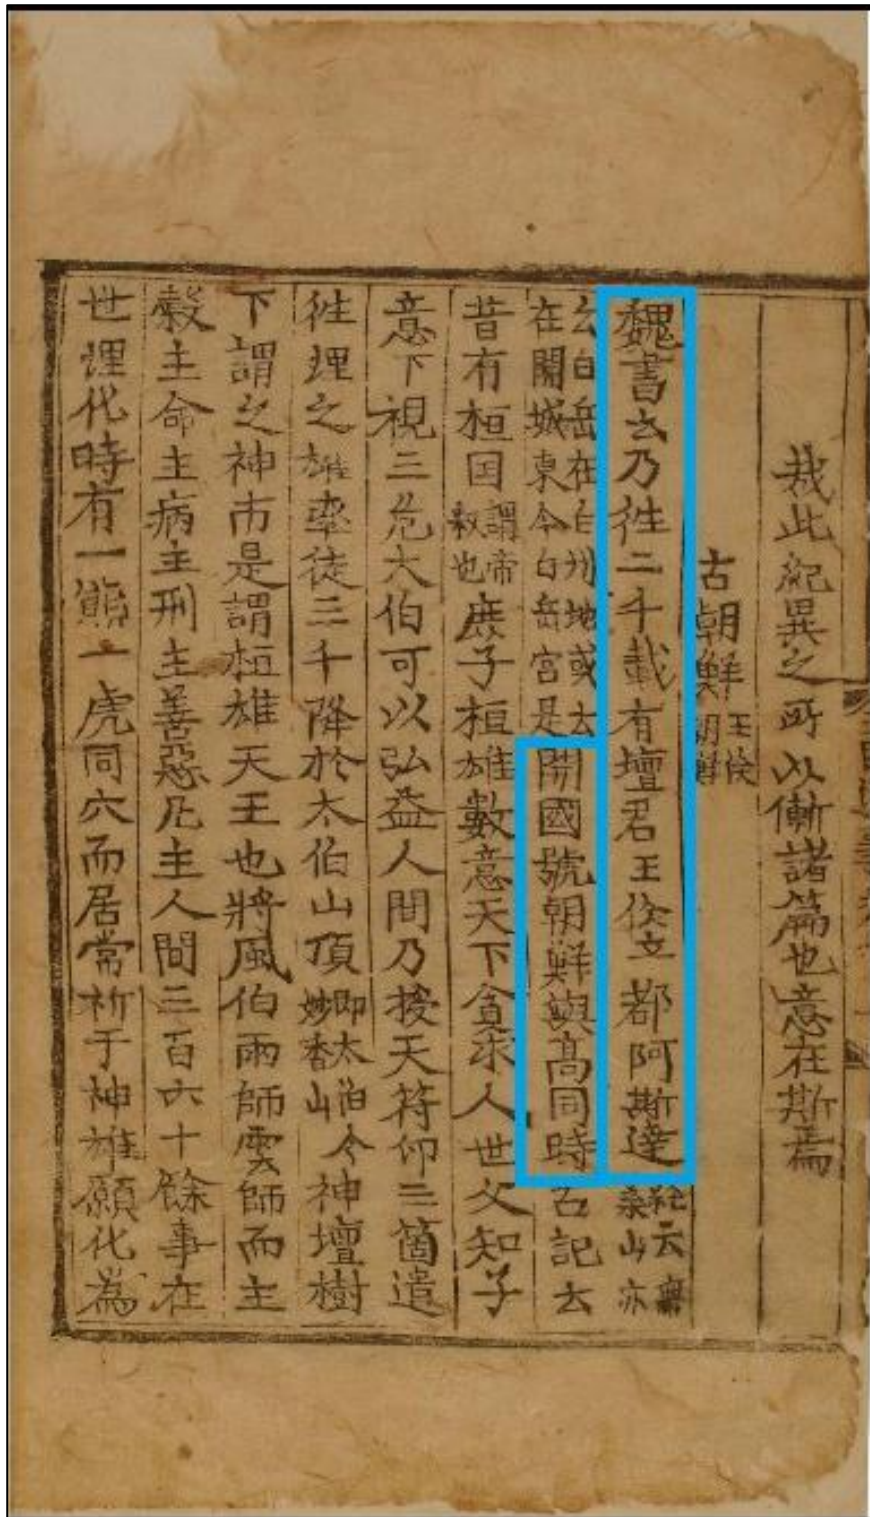 㢤此紀異之所以慚諸篇也意在斯焉
古朝鮮王儉朝鮮
魏書云乃徃二千載有壇君王儉立都阿斯達經云無葉山亦
云白岳在白州地或云在開城東今白岳宮是開國號朝鮮與高同時古記云
昔有桓国謂帝釈也庶子桓雄數意天下貪求人世父知子
意下視三危太伯可以弘益人間乃授天符印三箇遣
徃理之雄率徒三千降於太伯山頂即太伯今妙香山神壇樹
下謂之神市是謂桓雄天王也將風伯雨師雲師而主
穀主命主病主刑主善惡凡主人間三百六十餘事在
世理化時有一熊一虎同穴而居常祈于神雄願化為